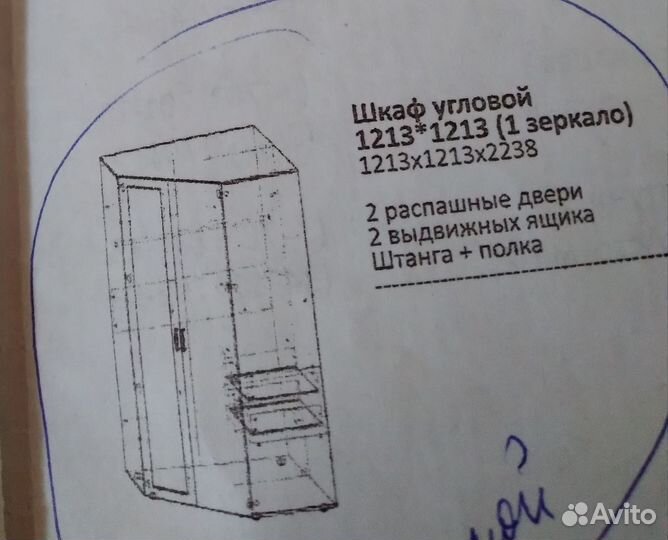 Шкаф угловой
1213*1213 (1 зеркало)
1213х1213х2238
2 распашные двери
2 выдвижных ящика
Штанга + полка
Avito